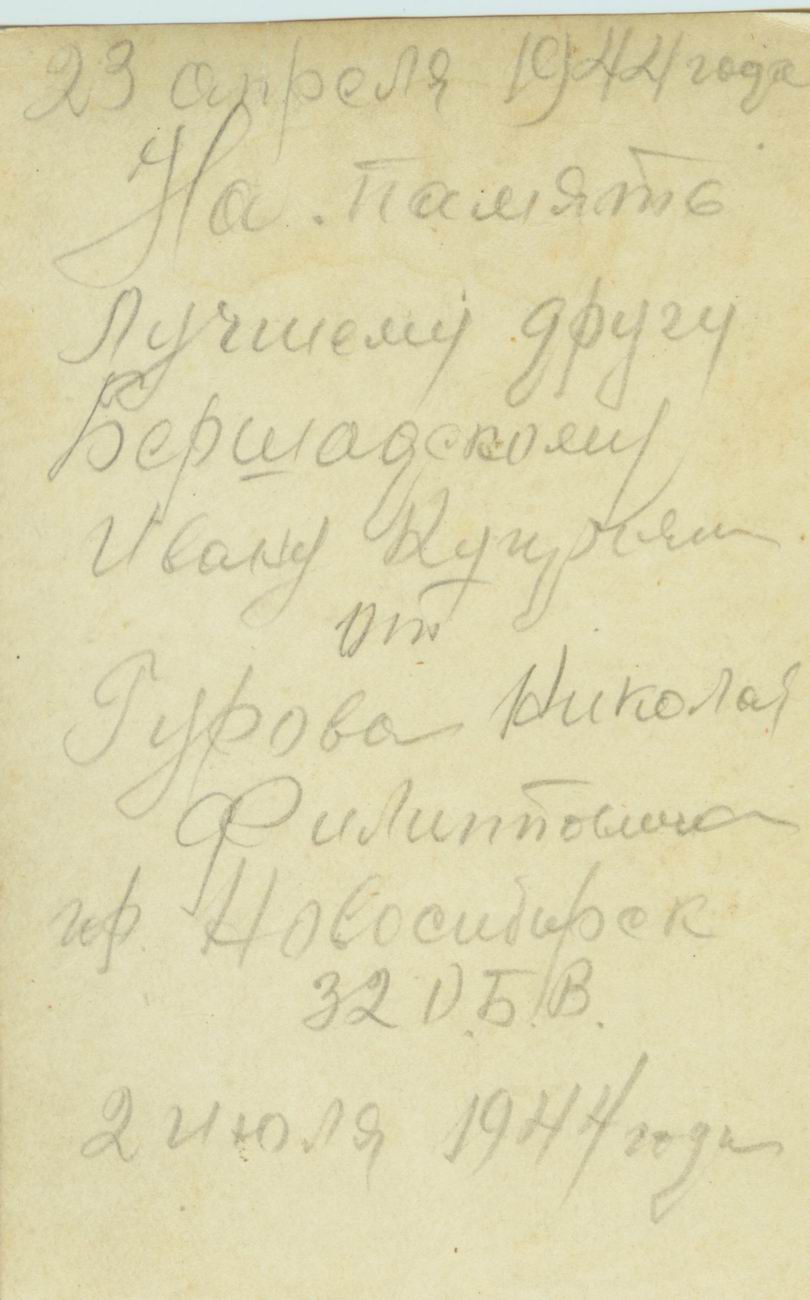 23 апреля 1944 года
На память
Лучшему другу
Бершадскому
Ивану
от
Гурова Николая
Филипповича
гор. Новосибирск
32 О.Б.В.
2 июля 1944 года